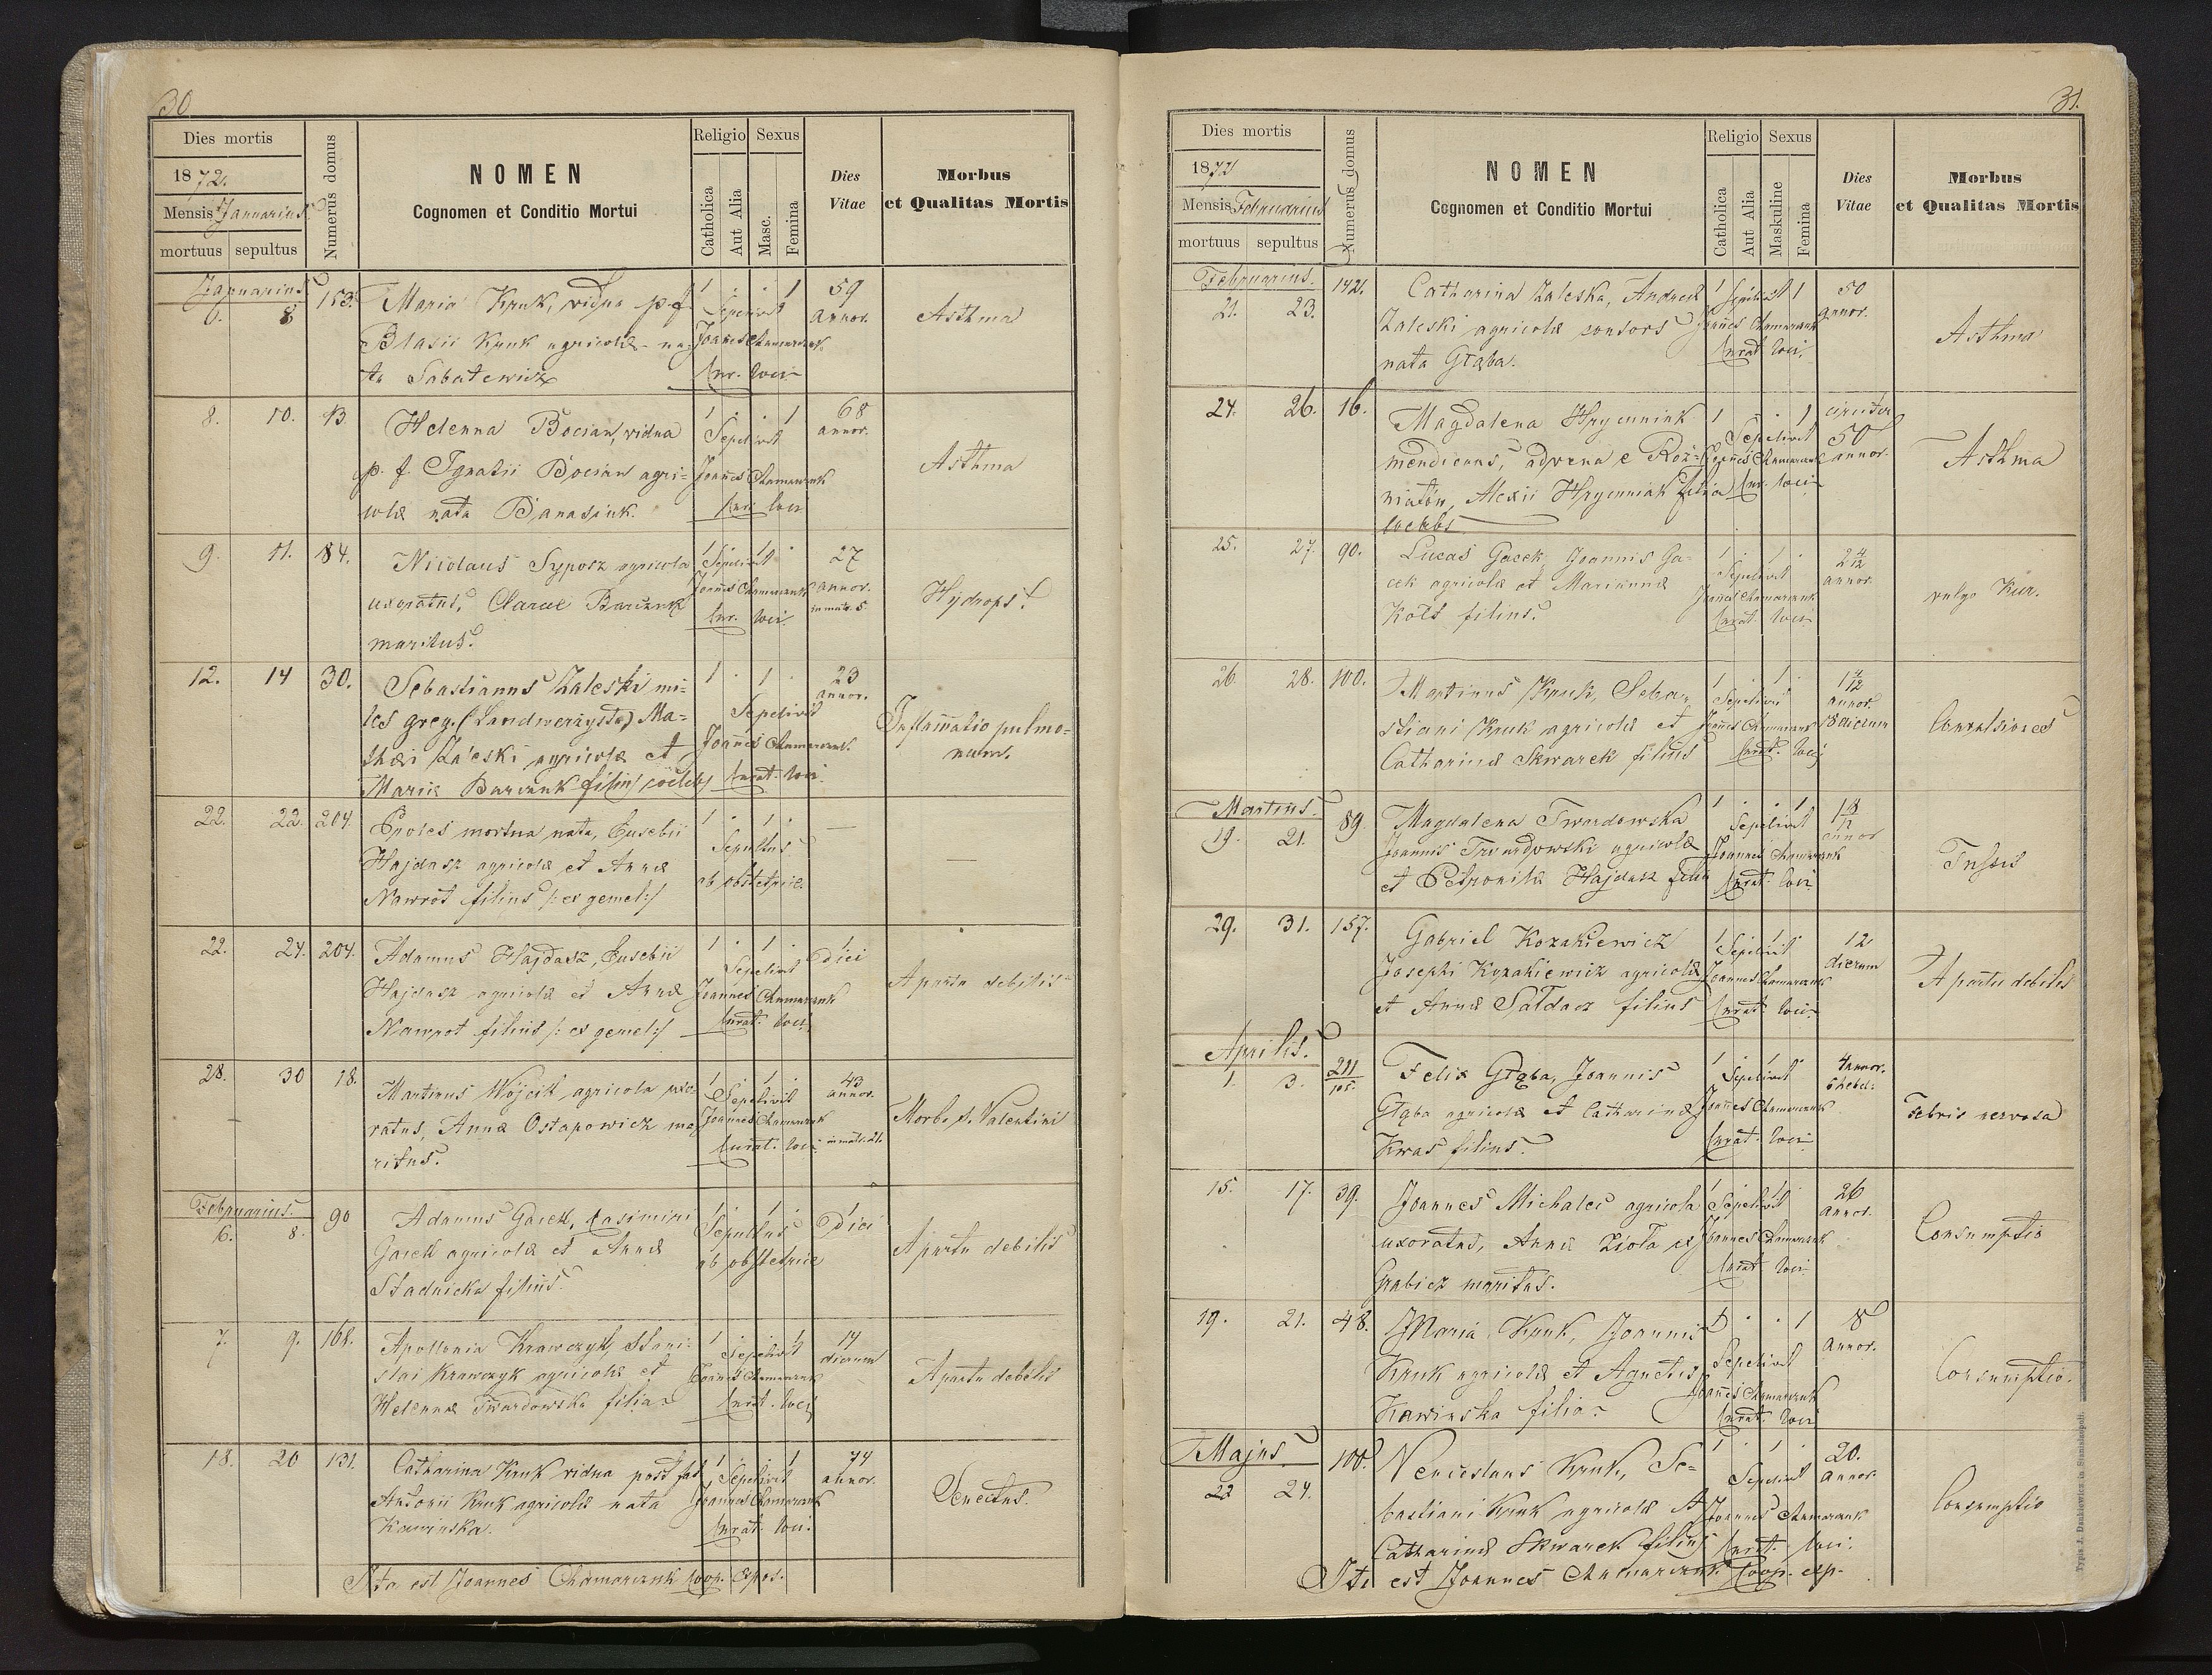 30
Dies mortis
1872.
Mensis Januarius
mortuus sepultus
Numerus domus
NOMEN
Cognomen et Conditio Mortui
Religio Sexus
Catholica
Aut Alia
Masc.
Femina
Dies
Vitae
Morbus
et Qualitas Mortis
Januarius
6. 8 153. Maria Kruk, vidua p. f. 1 . . 1 59
Blasii Kruk agricolæ na- Sepelivit annor. Asthma
ta Sabatowicz Joannes Chamarczuk
Cur. loci
8. 10. 13 Helenna Bocian, vidua 1 . . 1 68
p. f. Ignatii Bocian agri- Sepelivit annor. Asthma
colæ nata Banasiuk. Joannes Chamarczuk
Cur. loci
9. 11. 84. Nicolaus Syposz agricola 1 . 1 . 27
uxoratus, Claræ Barczuk Sepelivit annor. Hydrops.
maritus. Joannes Chamarczuk in matr. 5
Cur. loci.
12. 14 30. Sebastianus Zaleski mi- 1 . 1 . 23
les greg. (Landwerzysta) Ma- Sepelivit annor. Inflamatio pulmo-
thæi Zaleski agricolæ et Joannes Chamarczuk num.
Mariæ Barczuk filius coelebs Curat. loci.
22. 22. 204. Proles mortua nata, Eusebii 1 . 1 . —
Hajdasz agricolæ et Annæ Sepultus —
Nawrot filius /: ex gemel:/ ab obstetrice.
22. 24. 204. Adamus Hajdasz, Eusebii 1 . 1 . 1
Hajdasz agricolæ et Annæ Sepelivit Diei A partu debilis
Nawrot filius /: ex gemel:/ Joannes Chamarczuk
Curat. loci
28. 30 18. Martinus Wójcik agricola uxo- 1 . 1 . 43
ratus, Annæ Ostapowicz ma- Sepelivit annor. Morb. s. Valentini
ritus. Joannes Chamarczuk in matr. 21.
Curat. loci
Februarius.
6. 8. 90 Adamus Gacek, Casimiri 1 . 1 . 1
Gacek agricolæ et Annæ Sepultus Diei A partu debilis
Stadnicka filius. ab obstetrice
7. 9. 168. Apollonia Krawczyk, Stani- 1 . . 1 14
slai Krawczyk agricolæ et Sepelivit dierum A partu debilis
Helennæ Twardowska filia Joannes Chamarczuk
Curat. loci
18. 20 131. Catharina Kruk vidua post fat. 1 . . 1 74
Antonii Kruk agricolæ nata Sepelivit annor. Senectus.
Kawinska. Joannes Chamarczuk
Curat. loci.
Ita est Joannes Chamarczuk Coop. expos.
31.
Dies mortis
1872
Mensis Februarius
mortuus sepultus
Numerus domus
NOMEN
Cognomen et Conditio Mortui
Religio Sexus
Catholica
Aut Alia
Maskuline
Femina
Dies
Vitae
Morbus
et Qualitas Mortis
Februarius.
21. 23. 142. Catharina Zaleska, Andreæ 1 Sepelivit 1 50
Zaleski agricolæ consors Joannes Chamarczuk annor. Asthma
nata Głąba. Curat loci.
24. 26. 16. Magdalena Hrycunink 1 . . 1 circiter
mendicans, advena e Roż- Sepelivit 50 Asthma
niatów, Alexii Hrycuniak filia Joannes Chamarczuk annor.
coelebs Cur. loci
25. 27. 90. Lucas Gacek, Joannis Ga- 1 . 1 . 2 4/12
cek agricolæ et Mariannæ Sepelivit annor. vulgo Kur.
Kots filius. Joannes Chamarczuk
Curat. loci
26. 28. 100. Martinus Kruk, Seba- 1 . 1 . 1 4/12
stiani Kruk agricolæ et Sepelivit annor. Convulsiones
Catharinæ Skwarek filius Joannes Chamarczuk 18 dierum
Curat. loci
Martius.
19. 21. 89. Magdalena Twardowska 1 . . 1 1 8/12
Joannis Twardowski agricolæ Sepelivit annor Tussis
et Petronilæ Hajdasz filia Joannes Chamarczuk
Curat. loci
29. 31. 157. Gabriel Kozakiewicz 1 . 1 . 12
Josephi Kozakiewicz agricolæ Sepelivit dierum A partu debilis
et Annæ Sałdacz filius Joannes Chamarczuk
Curat. loci
Aprilis.
1. 3. 211/105. Felix Głąba, Joannis 1 . 1 . 4 annor.
Głąba agricolæ et Catharinæ Sepelivit 6 hebd. Febris nervosa
Kwas filius. Joannes Chamarczuk
Curat. loci
15. 17. 39. Joannes Michalec agricola 1 . 1 . 26
uxoratus, Annæ Zioła ex Sepelivit annor. Consumptio
Grabicz maritus. Joannes Chamarczuk
Curat loci
19. 21. 48. Maria Kruk, Joannis 1 . . 1 8
Kruk agricolæ et Agnetis Sepelivit annor. Consumptio.
Kawinska filia. Joannes Chamarczuk
Curat. loci
Majus.
22 24. 100. Venceslaus Kruk, Se- 1 . 1 . 20.
bastiani Kruk agricolæ et Sepelivit annor. Consumptio
Catharinæ Skwarek filius Joannes Chamarczuk
Curat. loci.
Ita est Joannes Chamarczuk Coop. exp.
Typis J. Dankiewicz in Stanislaopoli.